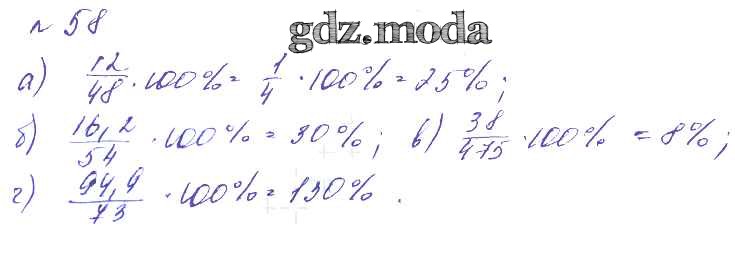 № 58
gdz.moda
а) 12/48 · 100% = 1/4 · 100% = 25%;
б) 16,2/54 · 100% = 30%; в) 38/475 · 100% = 8%;
г) 94,9/73 · 100% = 130%.